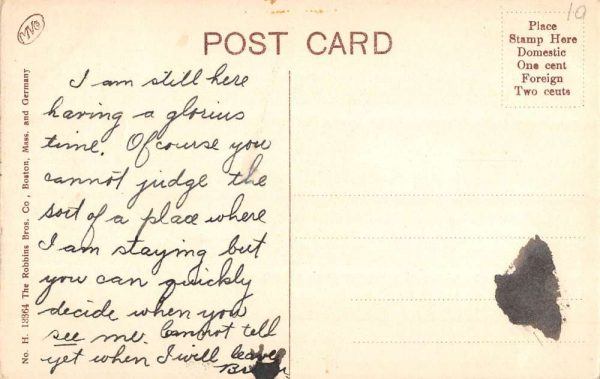 MVB
10
POST CARD
Place
Stamp Here
Domestic
One cent
Foreign
Two cents
No. H. 13364 The Robbins Bros. Co., Boston, Mass. and Germany
I am still here
having a glorius
time. Of course you
cannot judge the
sort of a place where
I am staying but
you can quickly
decide when you
see me. Cannot tell
yet when I will leave